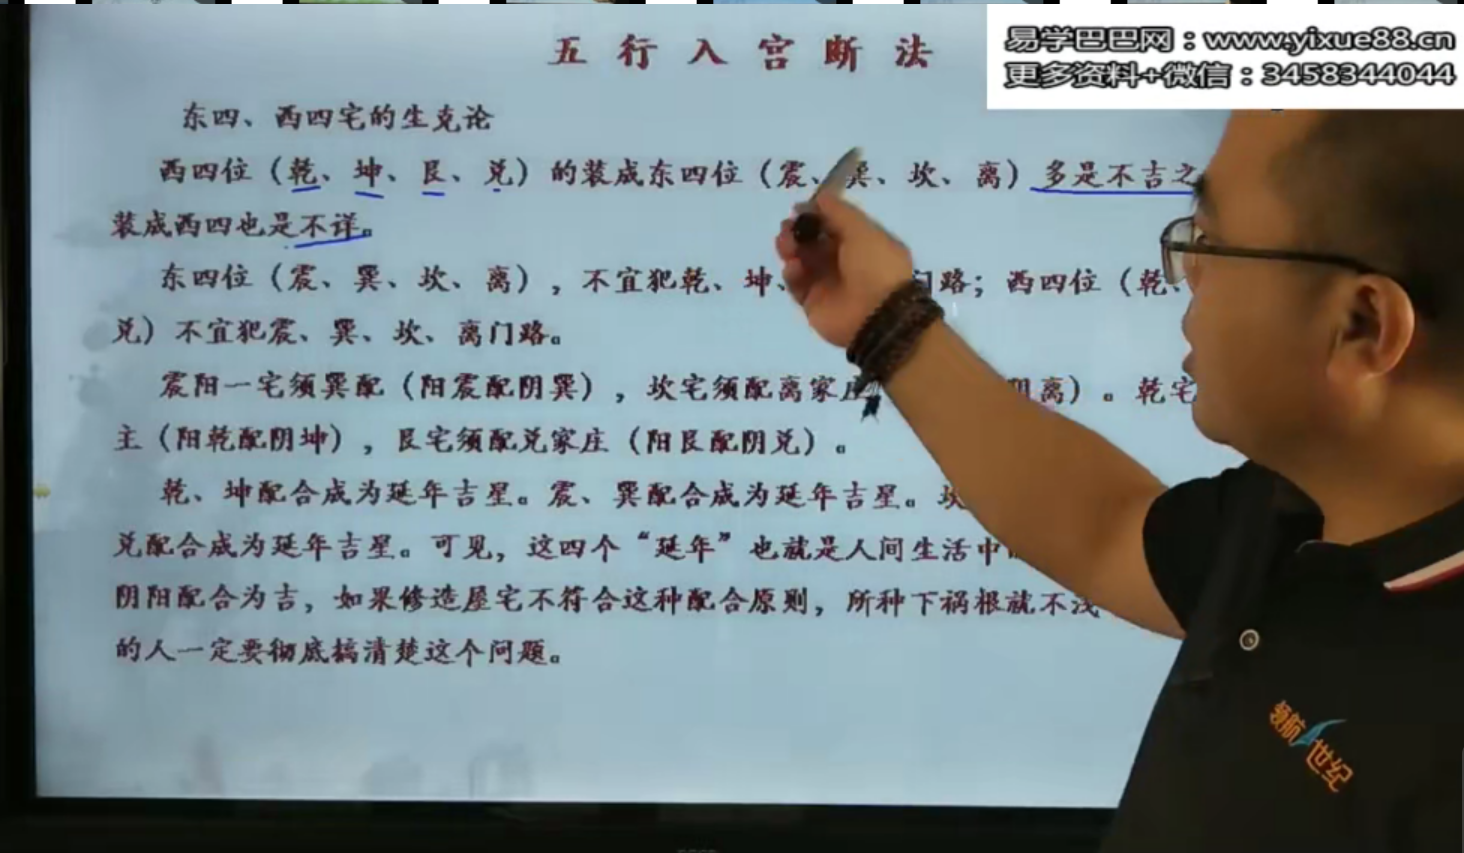 五行入宫断法
易学巴巴网：www.yixue88.cn
更多资料+微信：3458344044
东四、西四宅的生克论
西四位（乾、坤、艮、兑）的装成东四位（震、巽、坎、离）多是不吉之
装成西四也是不详。
东四位（震、巽、坎、离），不宜犯乾、坤、门路；西四位（乾、
兑）不宜犯震、巽、坎、离门路。
震阳一宅须巽配（阳震配阴巽），坎宅须配离家庄 阴离）。乾宅
主（阳乾配阴坤），艮宅须配兑家庄（阳艮配阴兑）。
乾、坤配合成为延年吉星。震、巽配合成为延年吉星。坎
兑配合成为延年吉星。可见，这四个“延年”也就是人间生活中
阴阳配合为吉，如果修造屋宅不符合这种配合原则，所种下祸根就不浅
的人一定要彻底搞清楚这个问题。
领航世纪